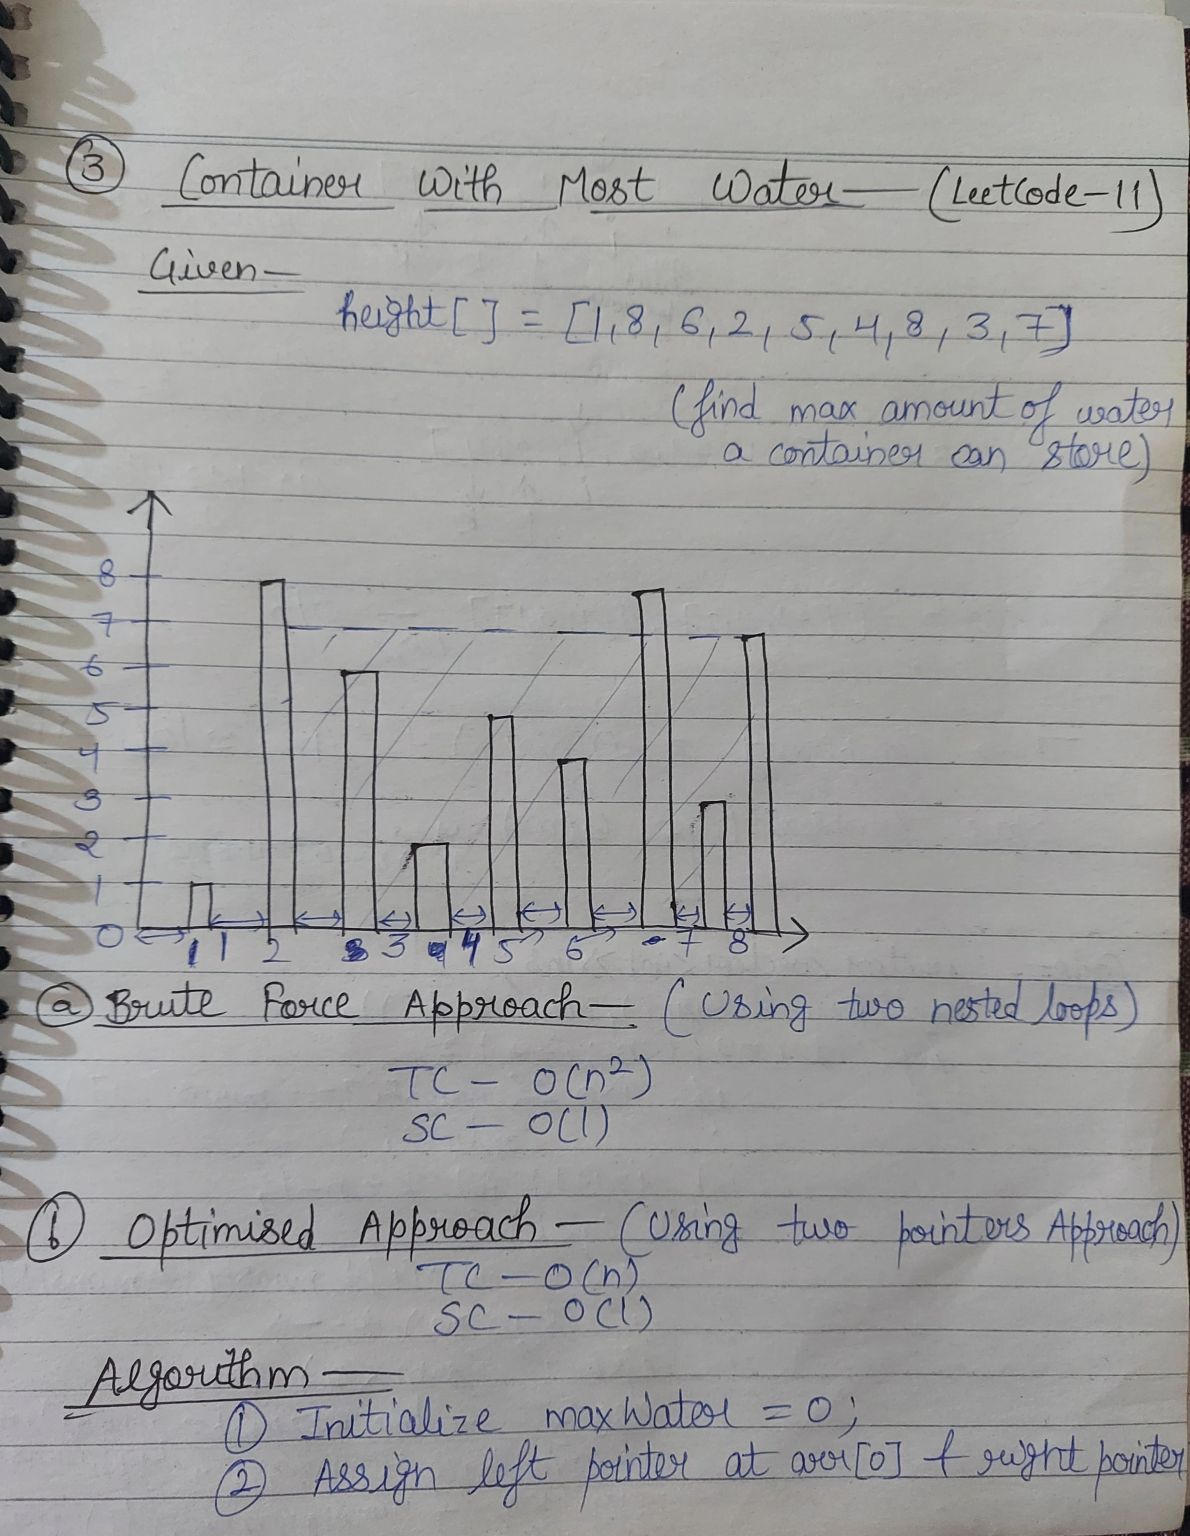 ③ Container With Most Water — (LeetCode-11)
Given —
height[] = [1,8,6,2,5,4,8,3,7]
(find max amount of water
a container can store)
8
7
6
5
4
3
2
1
0
1 2 3 4 5 6 7 8
ⓐ Brute Force Approach — (Using two nested loops)
TC — O(n²)
SC — O(1)
ⓑ Optimised Approach — (Using two pointers Approach)
TC — O(n)
SC — O(1)
Algorithm —
① Initialize maxWater = 0;
② Assign left pointer at arr[0] & right pointer